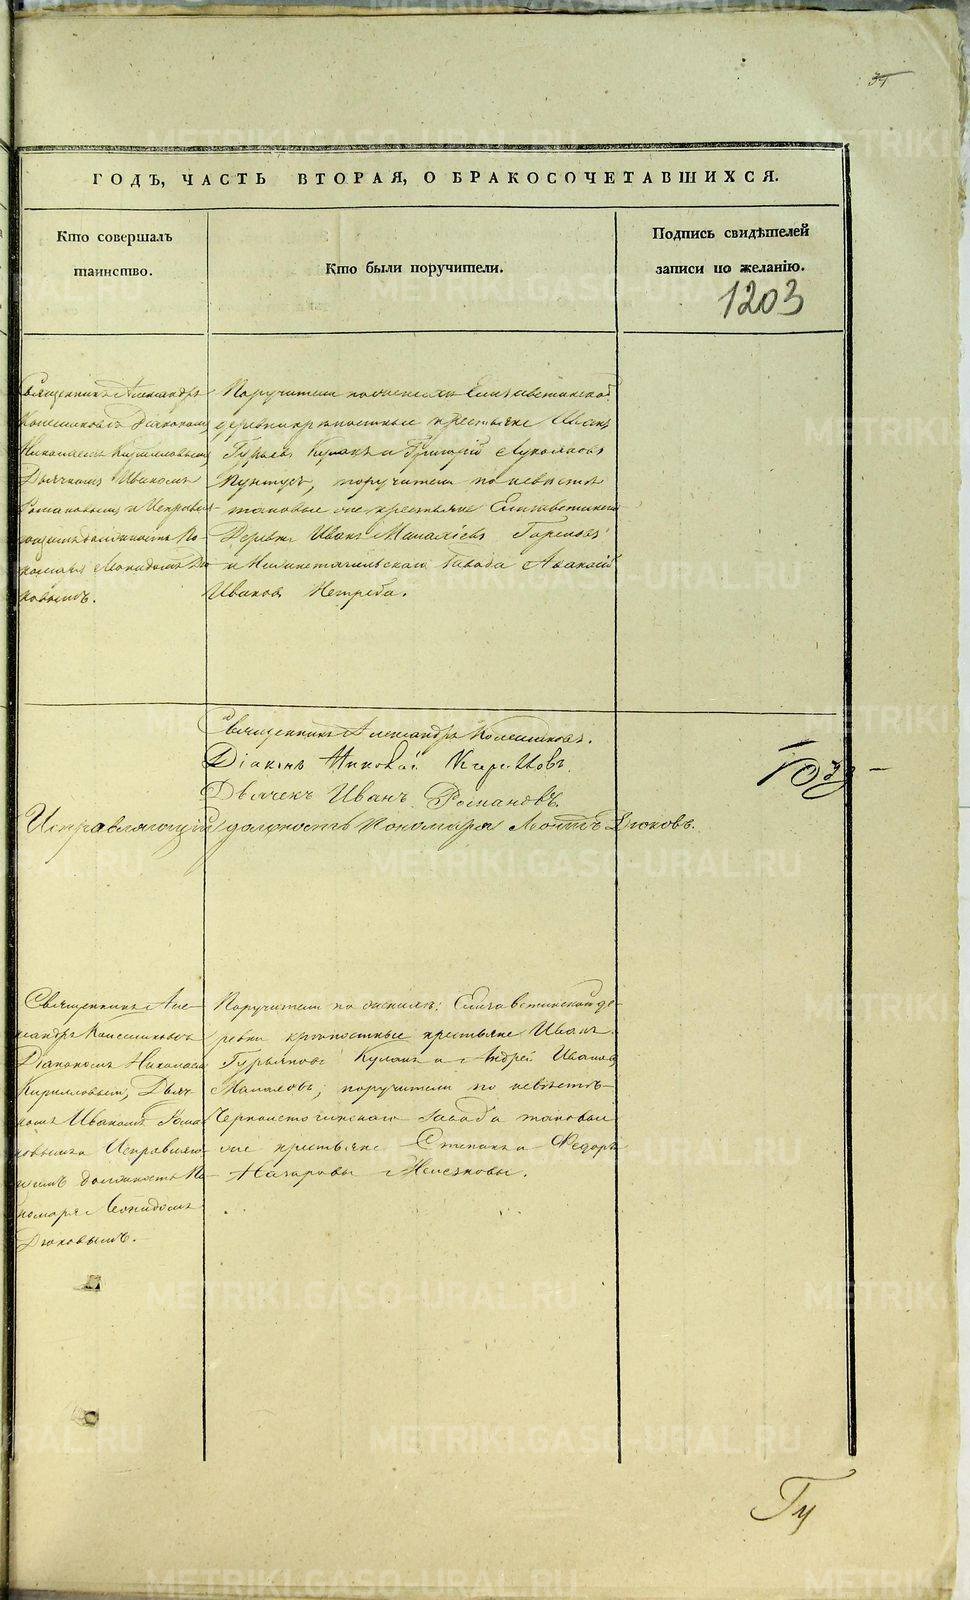 ГОДЪ, ЧАСТЬ ВТОРАЯ, О БРАКОСОЧЕТАВШИХСЯ.
Кто совершалъ
таинство.
Кто были поручители.
Подпись свидѣтелей
записи по желанію.
1203
Священникъ Александръ
Діакономъ
Николаемъ Кирилловымъ,
Дьячкомъ Иваномъ
Романовымъ и Исправля-
ющимъ должность По-
номаря Леонидомъ Дю-
ковымъ.
Поручители по женихѣ Елизаветинской
деревни крѣпостные крестьяне Иванъ
Гурьевъ Кулакъ и Григорій
поручители по невѣстѣ
таковые же крестьяне Елизаветинской
Деревни Иванъ Гореловъ
и Нижнетагильскаго Завода
Ивановъ Нетреба.
Священникъ Александръ
Діаконъ Николай Кирилловъ.
Дьячекъ Иванъ Романовъ.
Исправляющій должность Пономаря Леонидъ Дюковъ.
Священникъ Але-
ксандръ
Діакономъ Николаемъ
Кирилловымъ, Дьяч-
комъ Иваномъ Рома-
новымъ и Исправляю-
щимъ должность По-
номаря Леонидомъ
Дюковымъ.
Поручители по женихѣ: Елизаветинской де-
ревни крѣпостные крестьяне Иванъ
Кулакъ и Андрей Ивановъ
поручители по невѣстѣ
Черноисточинскаго Завода таковые
же крестьяне Степанъ и Федоръ
Назаровы